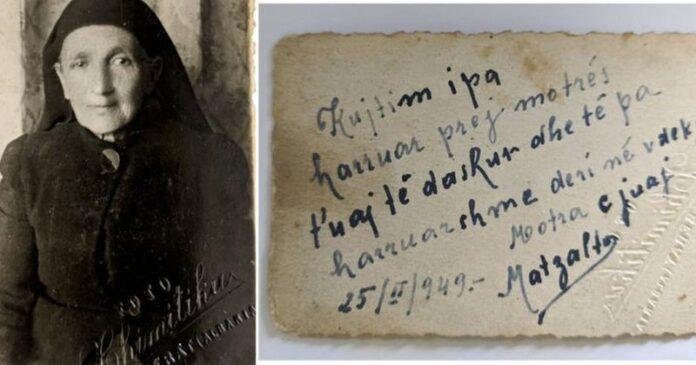 FOTO
Kujtim i pa
harruar prej motrës
t'uaj të dashur dhe të pa
harruarshme deri në vdek
Motra e juaj
25/II/949.-